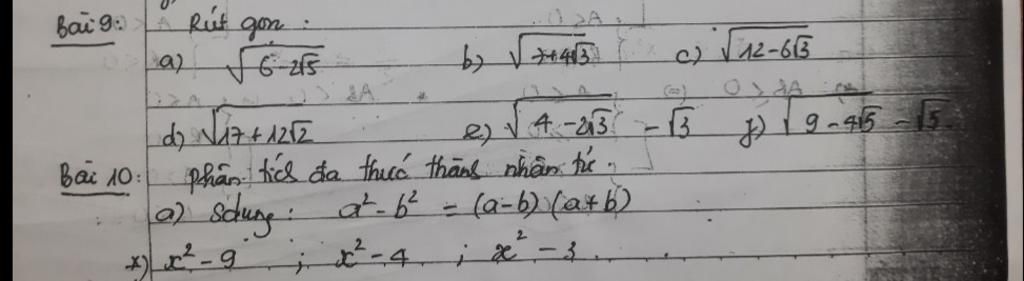 Bài 9: Rút gọn :
a) √(6-2√5) b) √(7+4√3) c) √(12-6√3)
d) √(17+12√2) e) √(4-2√3) - √3 f) √(9-4√5) - √5
Bài 10: phân tích đa thức thành nhân tử.
a) Sdụng: a² - b² = (a-b)(a+b)
*) x² - 9 ; x² - 4 ; x² - 3